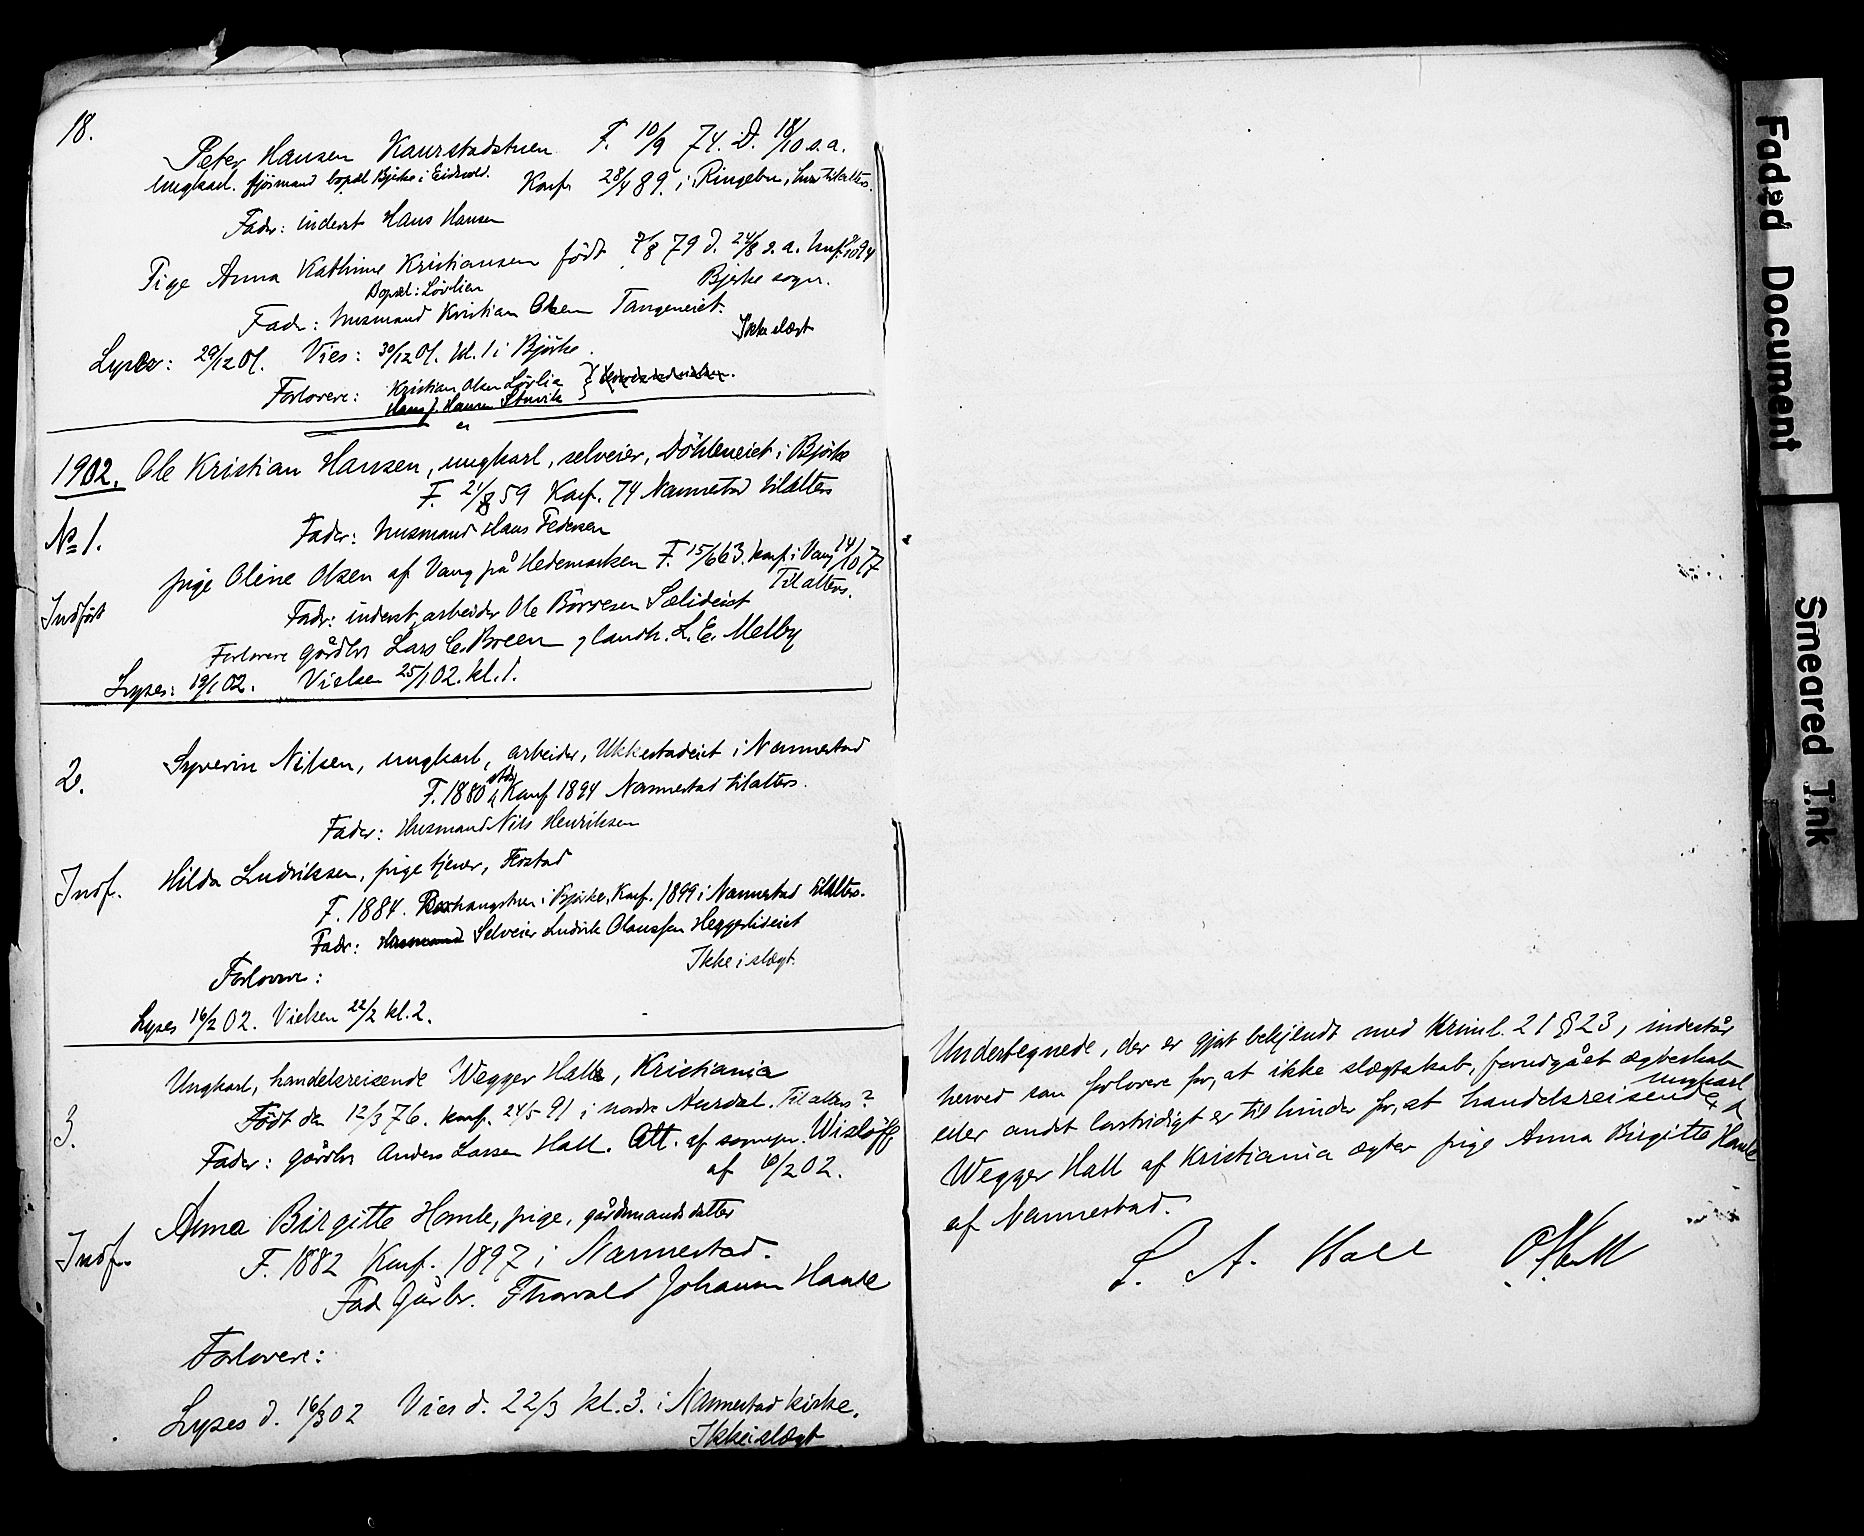 18.
Peter Hansen Kaurstadstuen F. 10/9 74. D. 18/10 s.a.
Ungkarl. bopæl Bjerke i Eidsvold. Konf. 28/4 89. i Ringebu,
Fader: inderst Hans Hansen
Pige Anna Kathrine Kristiansen født 2/8 79 d. 24/8 s.a.
Bopæl: Lövlien Bjerke sogn.
Fader: husmand Kristian Olsen Tangeneiet.
Ikke slægt
Lyses: 29/12 01. Vies: 30/12 01. kl. 1 i Björke.
Forlovere: Kristian Olsen Lövlie
Hans J. Hansen
1902. Ole Kristian Hansen, ungkarl, selveier, Döhleneiet i Björke
F. 21/8 59 Konf. 74 Nannestad tilalters
No 1. Fader: husmand Hans Pedersen
pige Oline Olsen af Vang på Hedemarken F. 15/6 63. konf. i Vang 14/10 77
Tilalters.
Indført Fader: inderst, arbeider Ole Börresen Sælideiet
Forlovere gårdbr Lars C. Breen, landh. L. E. Melby
Lyses: 19/1 02. Vielse 25/1 02. kl. 1.
2. Syverin Nilsen, ungkarl, arbeider, Ukkestadeiet i Nannestad
F. 1880 Konf 1894 Nannestad tilalters.
Fader: Husmand Nils Henriksen
Indf. Hilda Ludviksen, pige tjener,
F. 1884. i Bjerke, Konf. 1899 i Nannestad tilalters.
Fader: Husmand Selveier Ludvik Olaussen Heggerlideiet
Ikke i slægt.
Forlovere:
Lyses 16/2 02. Vielsen 22/2 kl. 2.
3. Ungkarl, handelsreisende Wegger Hall, Kristiania
Født den 12/3 76. konf. 24/5 91 i nordre Aurdal. Tilalters?
Fader: gårdbr Anders Larsen Hall. Att. af sognepr. Wisløff
af 6/2 02.
Anna Birgitte Homle, pige, gårdmandsdatter
Indf. F. 1882 Konf. 1897 i Nannestad.
Fad Gårbr. Thorvald Johannes
Forlovere:
Lyses d. 16/3 02 Vies d. 22/3 kl. 3. i Nannestad kirke.
Ikke i slægt
Undertegnede, der er gjort bekjendt med Kriml. 21 § 23, indestår
herved som forlovere for, at ikke slægtskab, forudgået ægteskab
eller andet lovstridigt er til hinder for, at ungkarl handelsreisende
Wegger Hall af Kristiania ægter pige Anna Birgitte
af Nannestad.
L. A. Hall
Faded Document
Smeared Ink